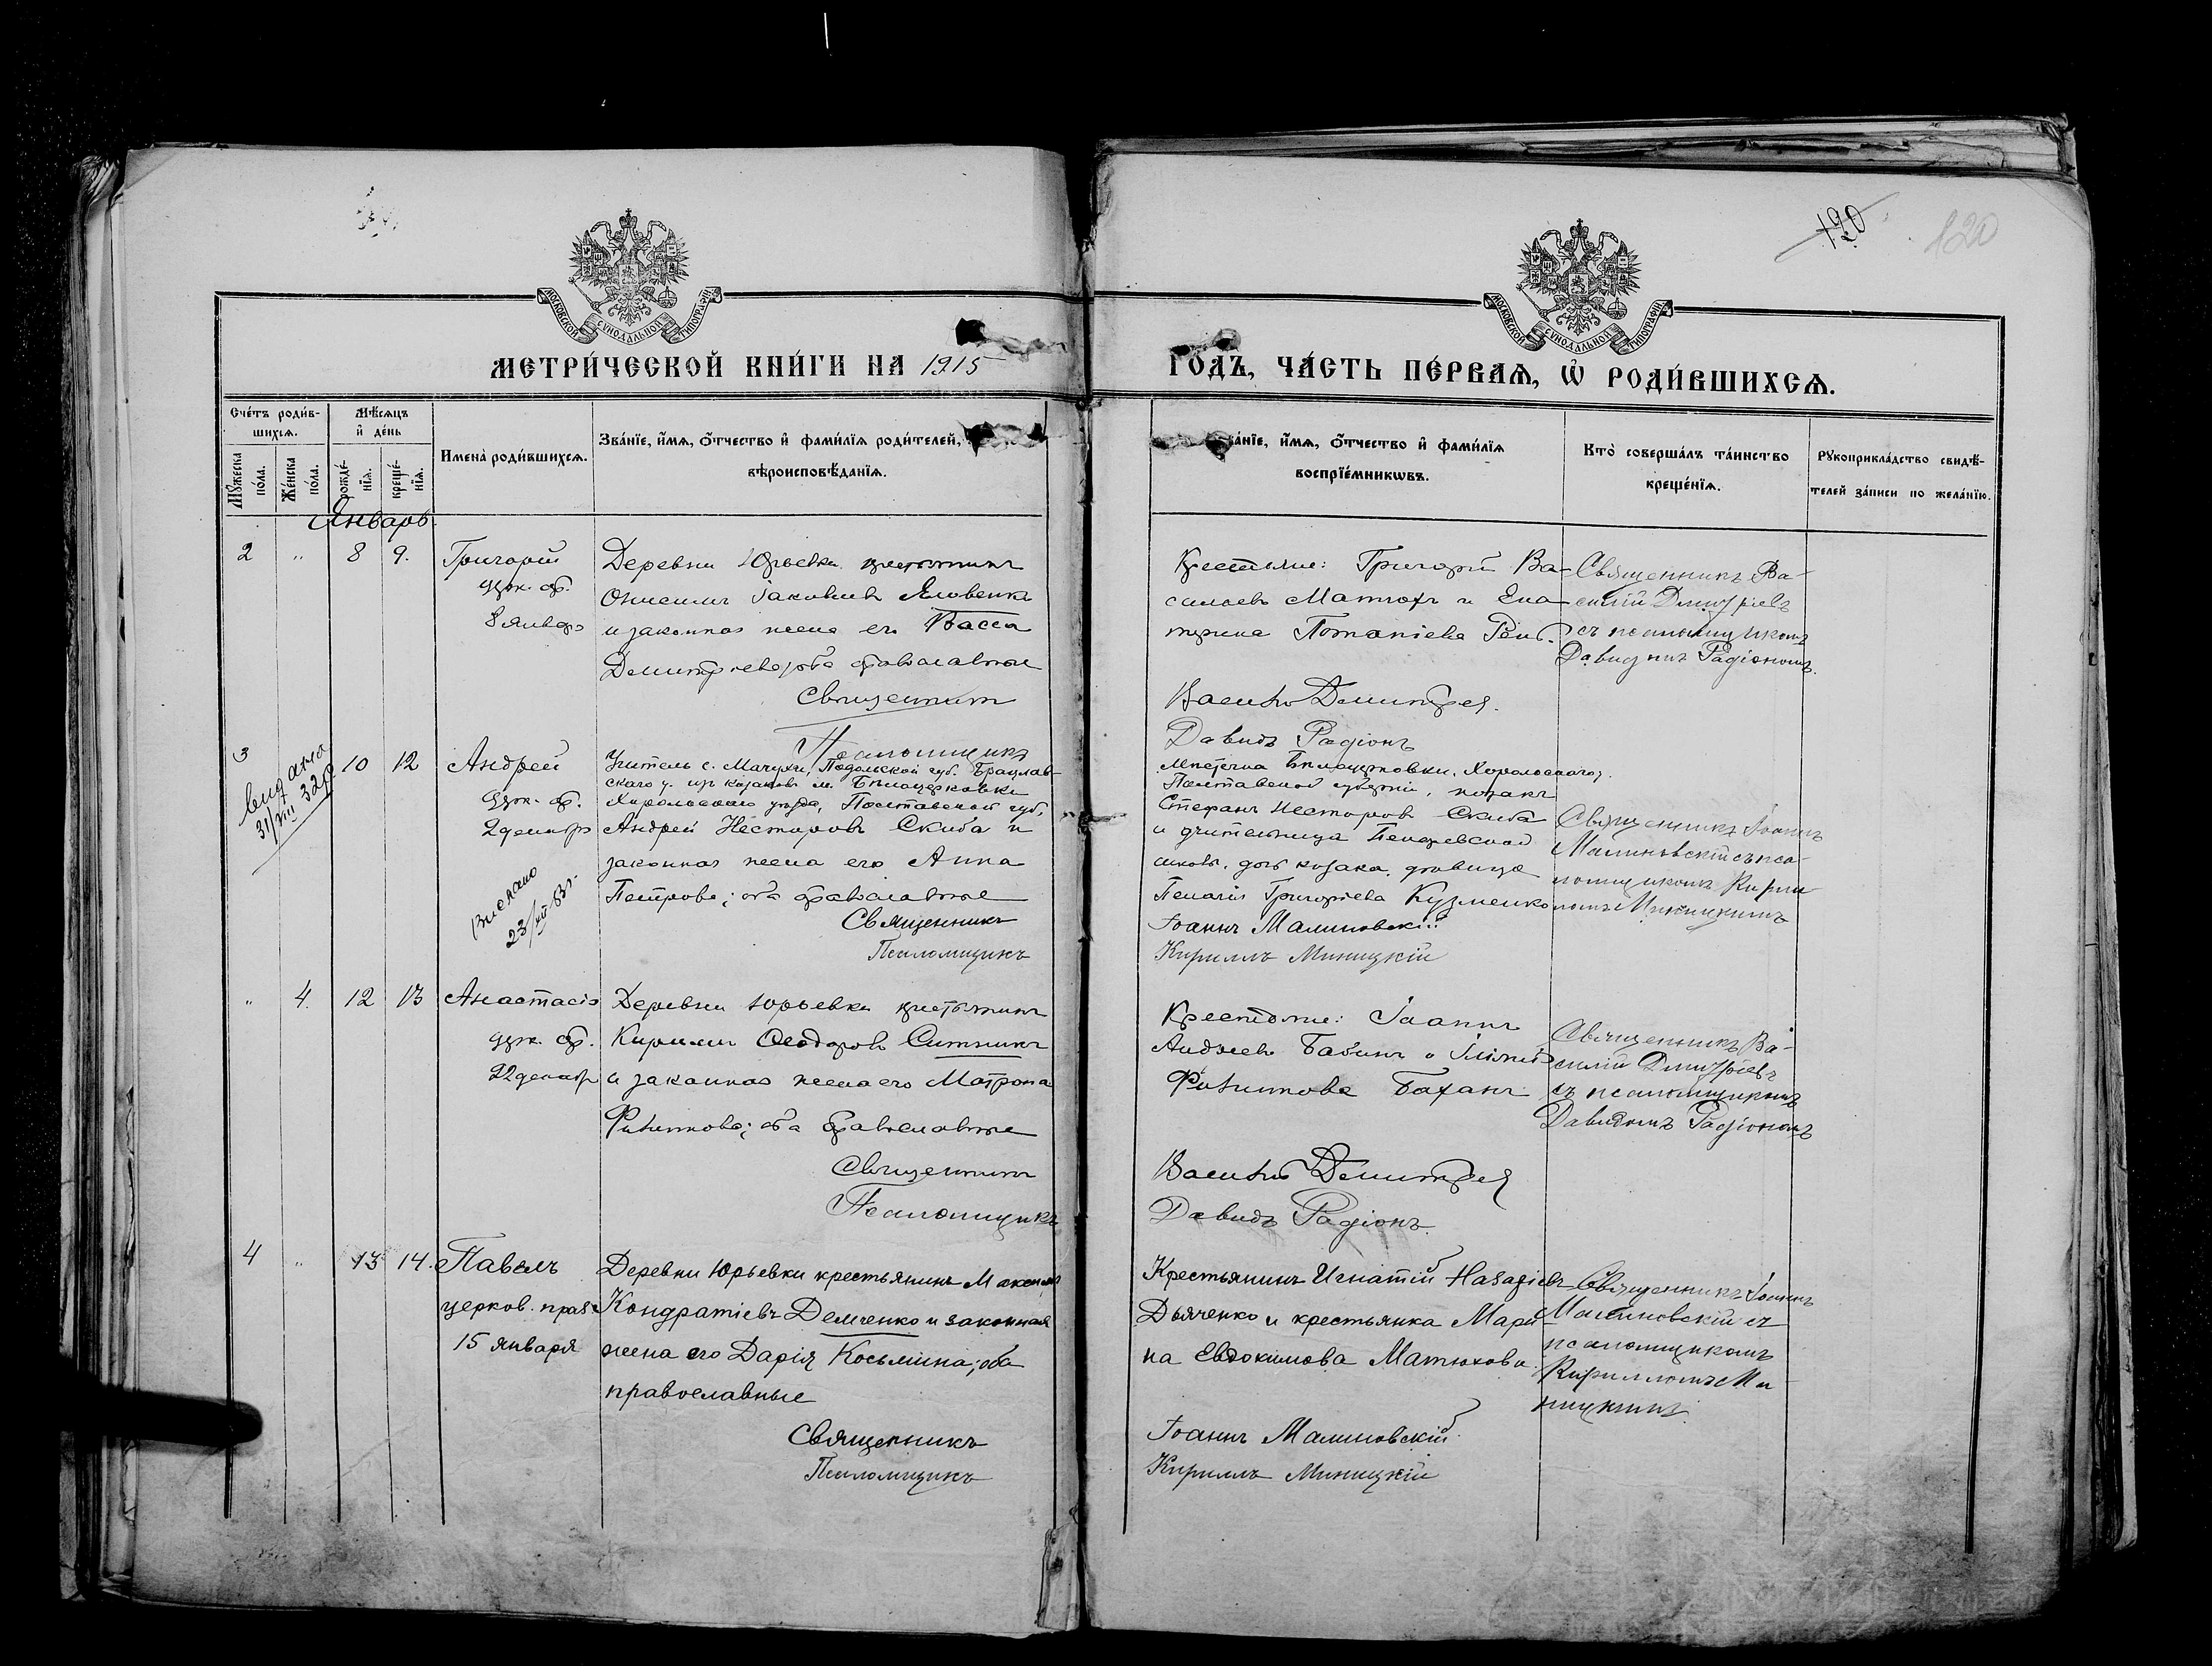 120
120
МОСКОВСКОЙ СУНОДАЛЬНОЙ ТИПОГРАФІИ
МОСКОВСКОЙ СУНОДАЛЬНОЙ ТИПОГРАФІИ
МЕТРИ́ЧЕСКОЙ КНИ́ГИ НА 1915
ГО́ДЪ, ЧА́СТЬ ПЕ́РВАѦ, Ѡ҆ РОДИ́ВШИХСѦ.
Сче́тъ роди́в-
шихсѧ.
Мꙋ́жеска по́ла.
Же́нска по́ла.
Мѣ́сѧцъ
и҆ де́нь
рожде́-
нїѧ.
креще́-
нїѧ.
Имена̀ роди́вшихсѧ.
Зва́нїе, и҆́мѧ, ѻ҆́тчество и҆ фами́лїѧ роди́телей,
вѣроисповѣ́данїѧ.
а́нїе, и҆́мѧ, ѻ҆́тчество и҆ фами́лїѧ
воспрїе́мникѡвъ.
Кто̀ соверша́лъ та́инство
креще́нїѧ.
Рꙋкоприкла́дство свидѣ́-
телей за́писи по жела́нїю.
Январь
2 " 8 9.
Григорій
церк. пр.
8 январ
Деревни Юрьевки крестьянинъ
Іаковлевъ Яловенко
и законная жена его Васса
Димитріева, оба православные
Священникъ
Псаломщикъ
Крестьяне: Григорій Ва-
сильевъ Матюхъ и Ека-
терина Потапіева
Священникъ Ва-
силій Дмитріевъ
съ псаломщикомъ
Давидомъ Радіономъ.
Василій Димитріев
Давидъ Радіонъ
3 10 12
видано
31/VIII 32 р
Андрей
церк. пр.
2 декабр
Вислано
23/VII 83 г.
Учитель с. Мачухи, Подольской губ. Брацлав-
скаго у. изъ козаковъ м. Бѣлоцерковки
Хорольскаго уѣзда, Полтавской губ.
Андрей Несторовъ Скиба и
законная жена его Анна
Петрова; оба православные
Священникъ
Псаломщикъ
Мѣстечка Бѣлоцерковки, Хорольскаго у.
Полтавской губерніи, козакъ
Стефанъ Несторовъ Скиба
и учительница
дочь козака, дѣвица
Пелагія Григоріева Кузменко
Іоаннъ Малиновскій
Кириллъ Миницкій
Священникъ Іоаннъ
Малиновскій съ пса-
ломщикомъ Кирил-
ломъ Миницкимъ
" 4. 12 13
Анастасія
церк. пр.
22 декабр
Деревни Юрьевки крестьянинъ
Кириллъ Ѳеодоровъ Ситникъ
и законная жена его Матрона
Филиппова; оба православные
Священникъ
Псаломщикъ
Крестьяне: Іоаннъ
Андреевъ Бабинъ и
Филиппова Баханъ
Священникъ Ва-
силій Дмитріевъ
съ псаломщикомъ
Давидомъ Радіономъ
Василій Димитріев
Давидъ Радіонъ
4 " 13 14.
Павелъ
церков. праз.
15 января
Деревни Юрьевки крестьянинъ Максимъ
Кондратіевъ Демченко и законная
жена его Дарія Косьмина; оба
православные
Священникъ
Псаломщикъ
Крестьянинъ Игнатій Назаріевъ
Дьяченко и крестьянка Мари-
на Евдокимова Матюхова.
Іоаннъ Малиновскій
Кириллъ Миницкій
Священникъ Іоаннъ
Малиновскій съ
псаломщикомъ
Кирилломъ Ми-
ницкимъ.